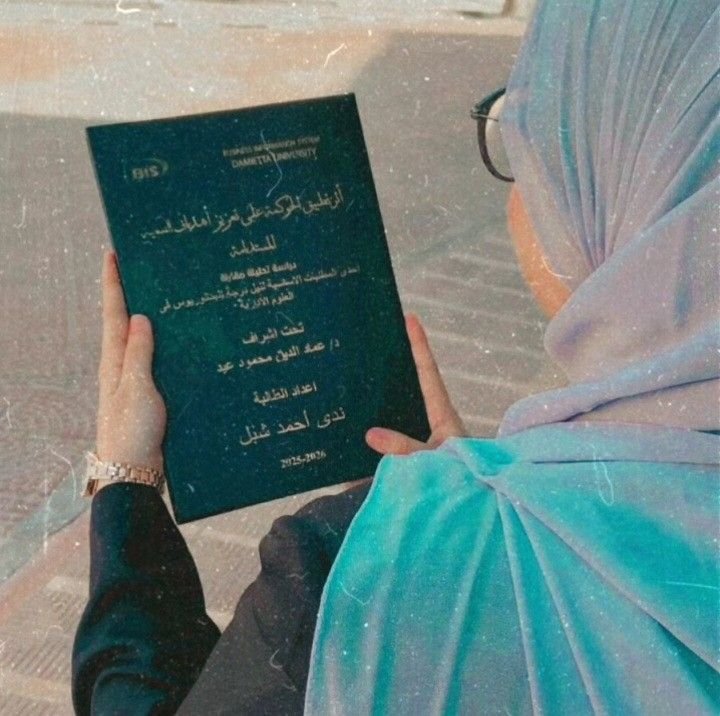 BIS
BUSINESS INFORMATION SYSTEM
DAMIETTA UNIVERSITY
أثر تطبيق الحوكمة على تعزيز أهداف التنمية
المستدامة
دراسة تحليلية مقارنة
إحدى المتطلبات الأساسية لنيل درجة البكالوريوس في
العلوم الإدارية
تحت إشراف
د/ عماد الدين محمود عيد
إعداد الطالبة
ندى أحمد شبل
2025-2026